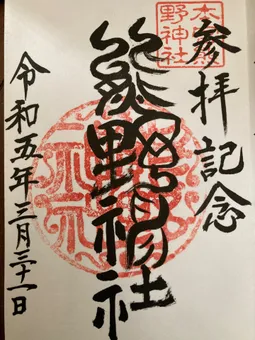 木熊野神社
參拝記念
熊野神社
令和五年三月三十一日